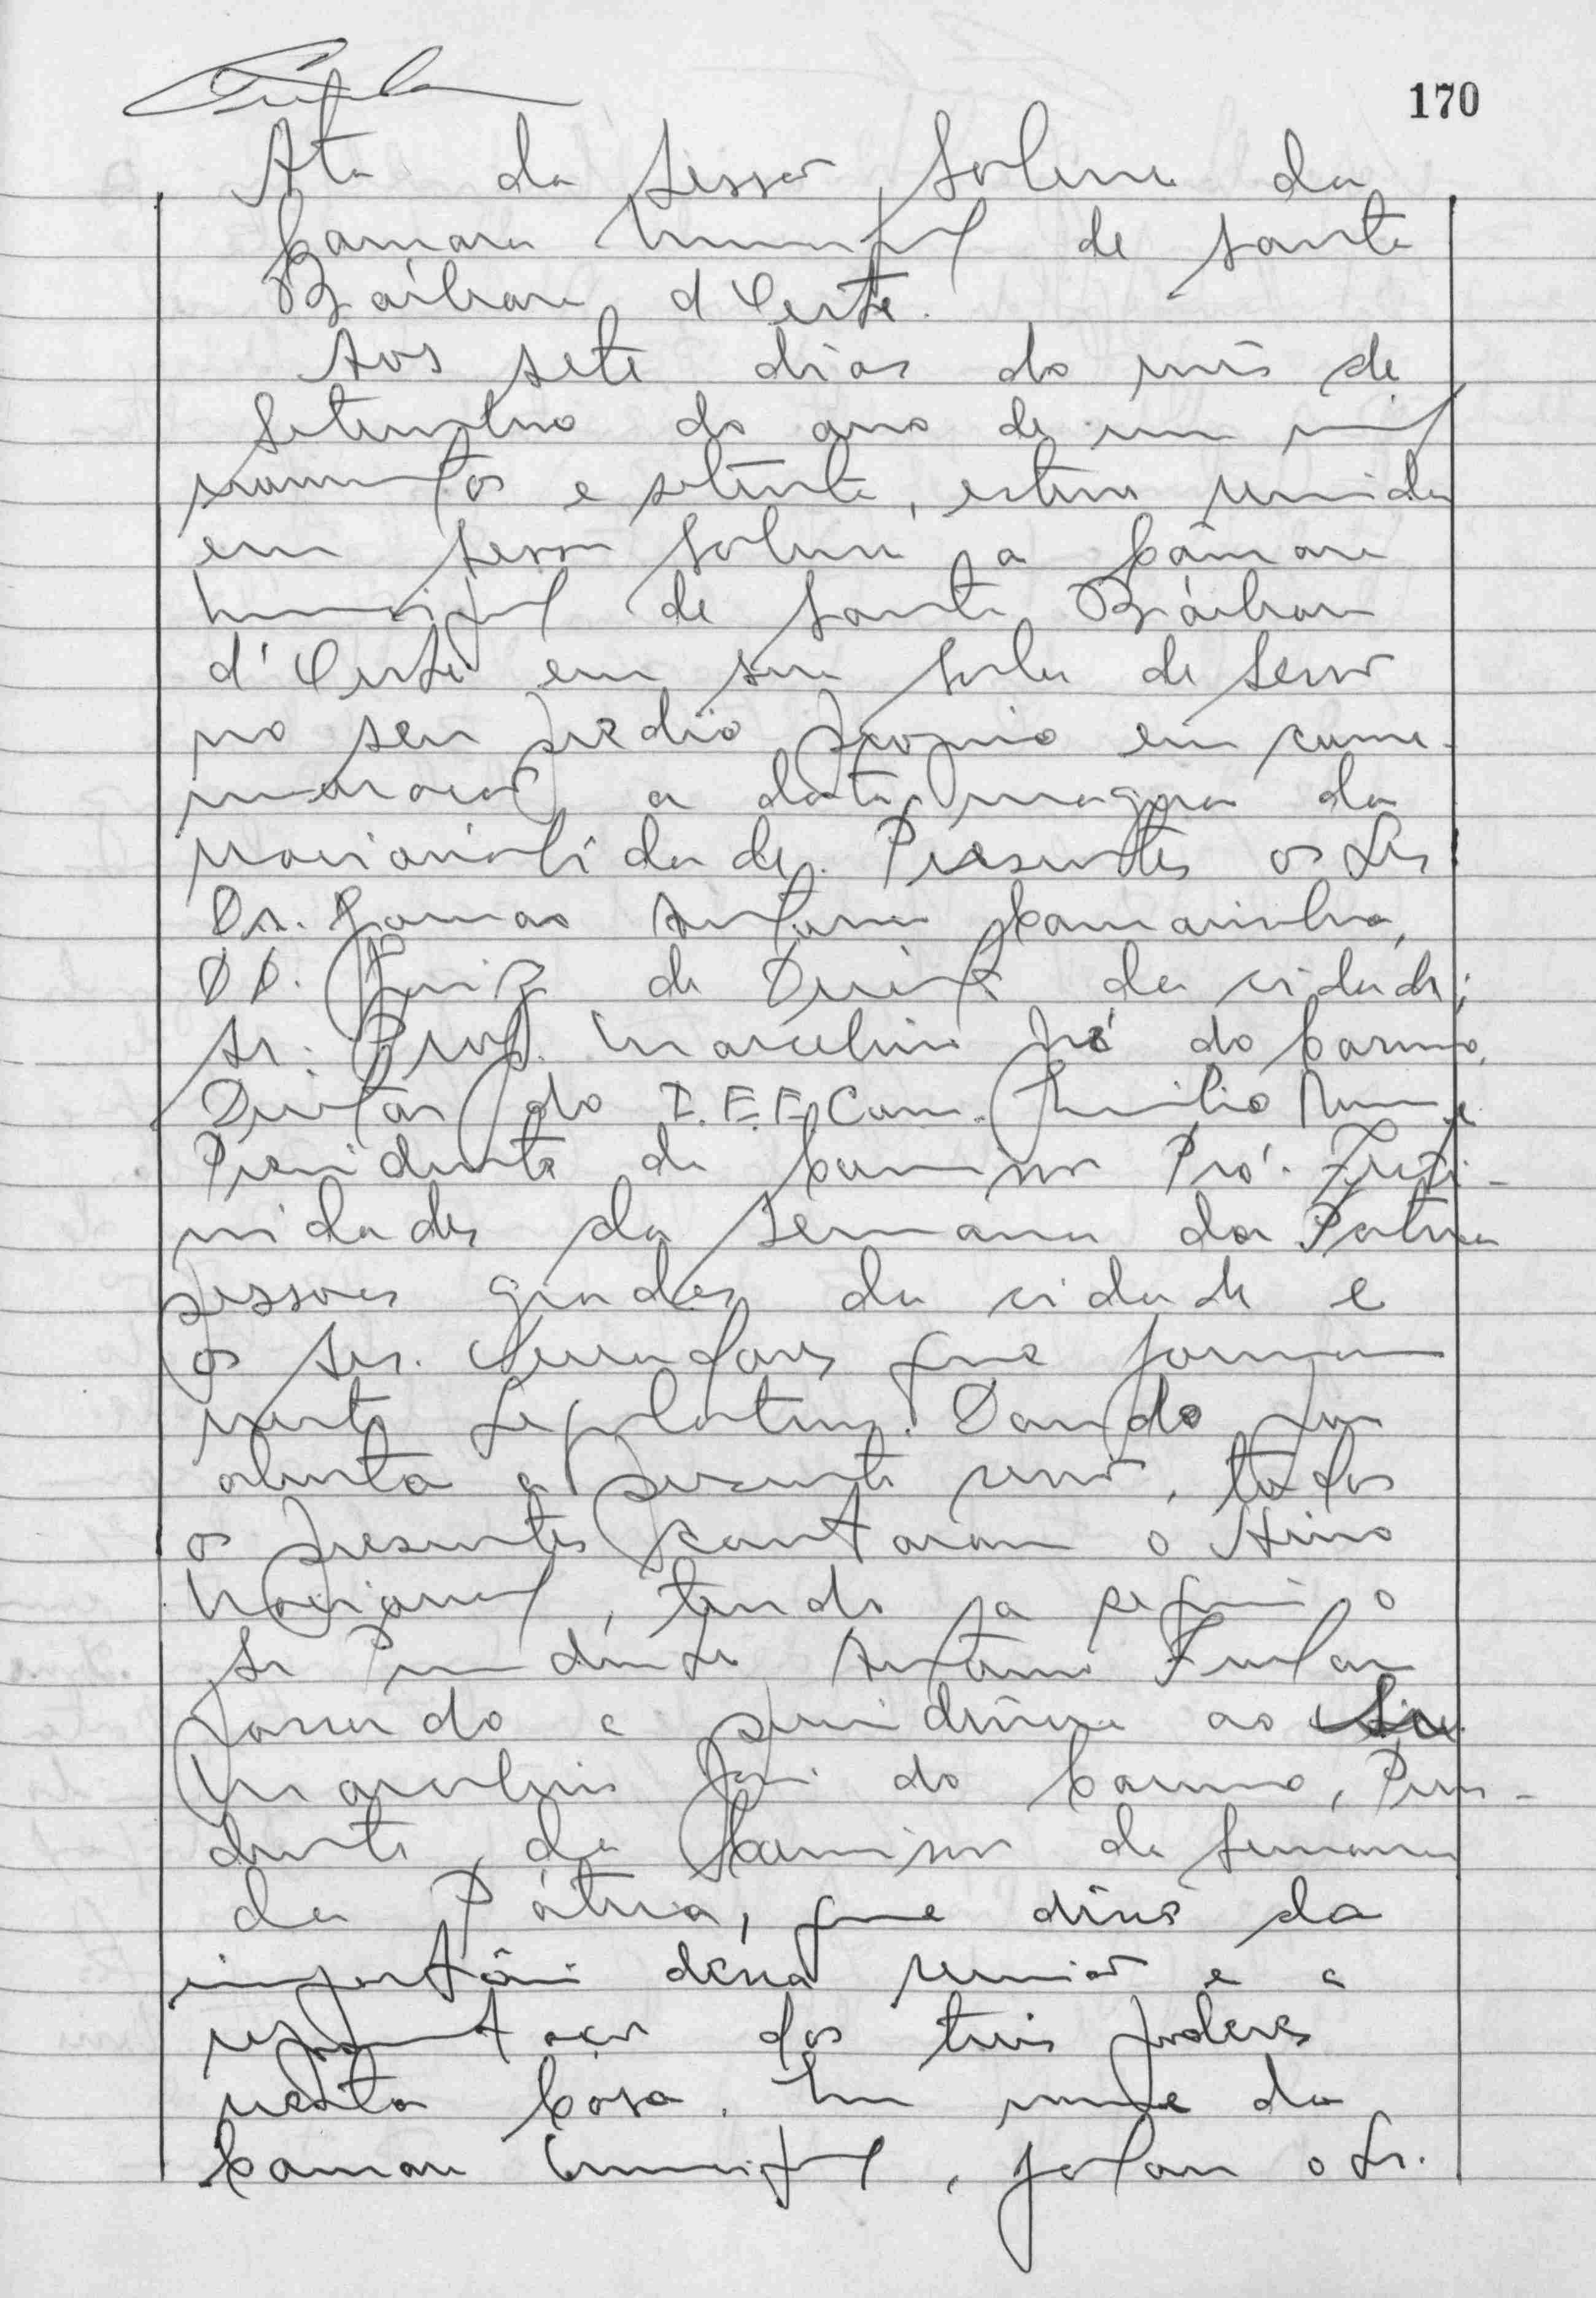 170
Ata da Sessão Solene da
Camara Municipal de Santa
Bárbara d'Oeste.
Aos sete dias do mês de
Setembro do ano de um mil
novecentos e setenta, esteve reunida
em sessão solene a Câmara
Municipal de Santa Bárbara
d'Oeste em sua sala de sessão
no seu predio proprio em come-
moracão a data magna da
nacionalidade. Presentes os Srs
Dr. Antonio Camarinha,
DD. Juiz de Direito da cidade;
Sr. Prof. Marcelino José do Carmo,
Diretor do I.E.E. Com. Emilio Romi e
Presidente da Comissão Pró-Festi-
vidades da Semana da Patria
pessoas gradas da cidade e
os Srs. Vereadores que formam
neste Legislativo. Dando por
aberta a presente sessão, todos
os presentes cantaram o Hino
Nacional, tendo a seguir o
Sr Presidente Antonio Furlan
passado a presidência ao Sr.
Marcelino José do Carmo, Presi-
dente da Comissão da Semana
da Pátria, que disse da
importância dessa reunião e a
representação dos três poderes
nesta Casa. Em nome da
Camara Municipal, falou o Sr.